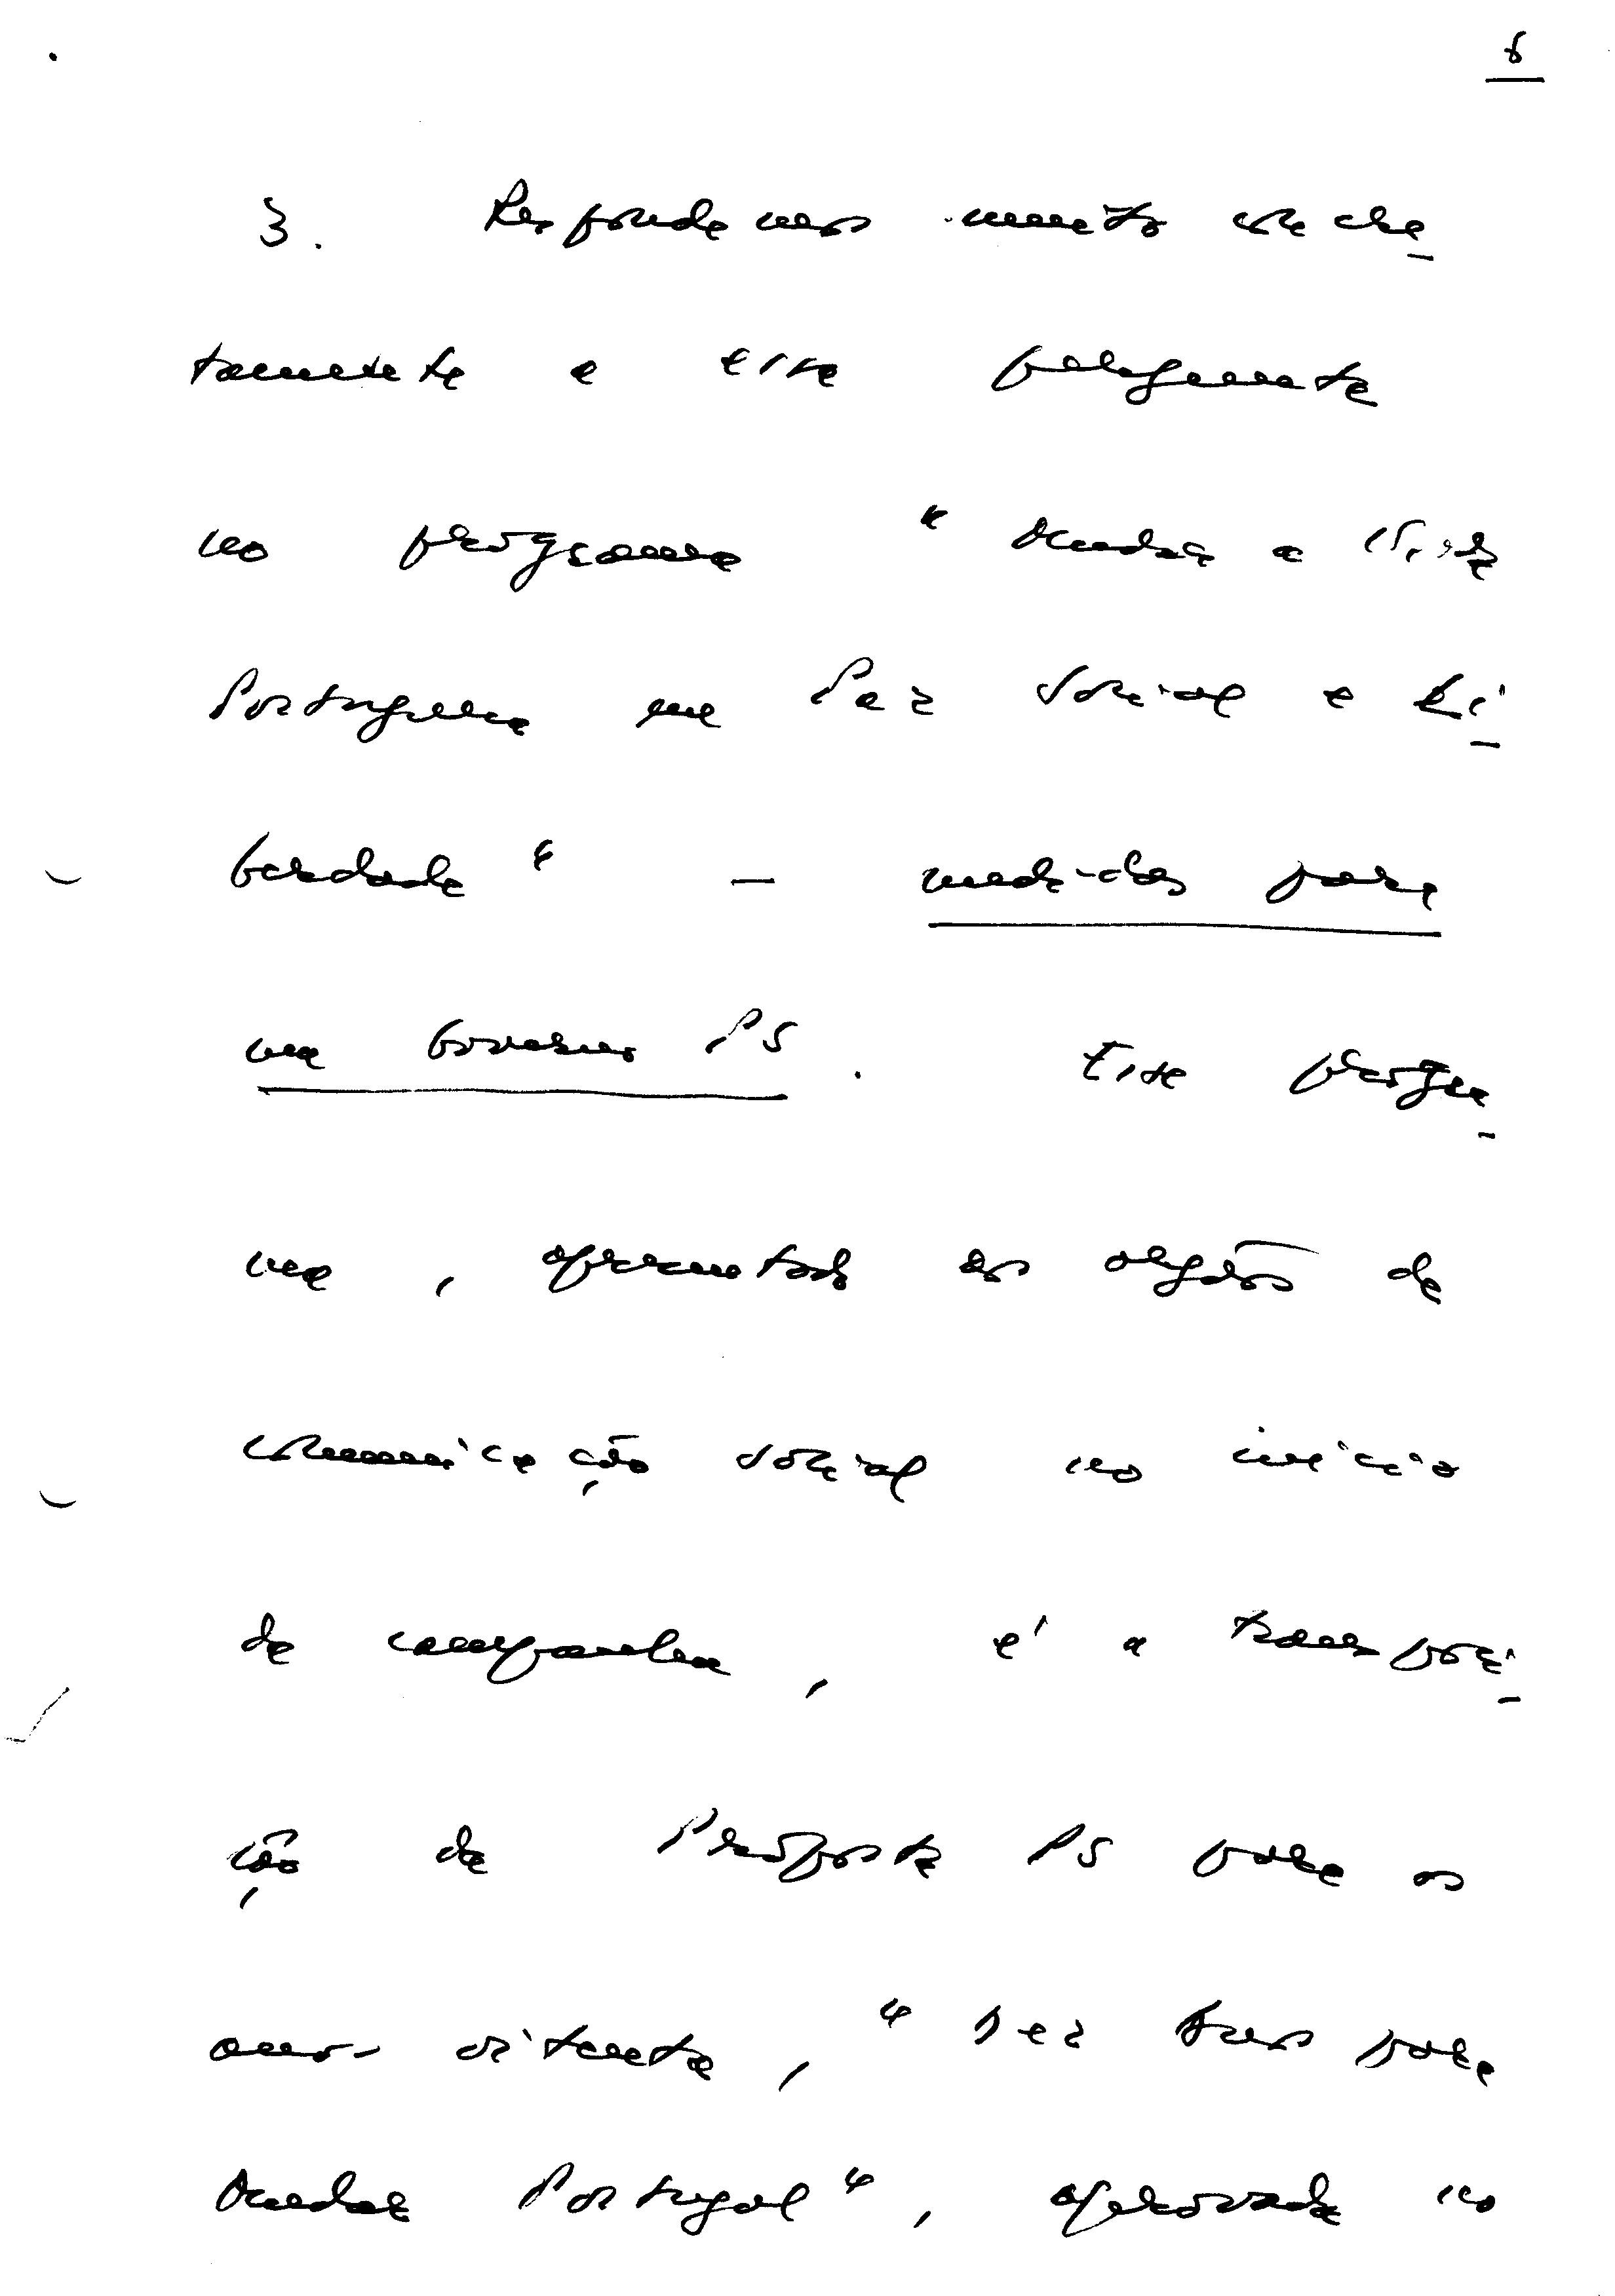 6
3. Respondemos muito concre-
tamente a essa pergunta
no programa "Mudar a Vida
Portuguesa em Paz Social e Li-
berdade" - medidas para
um Governo PS. Esse progra-
ma, apresentado aos orgãos de
comunicação social no início
da campanha, é a transposi-
ção da Proposta PS para os
anos oitenta, "Dez anos para
Mudar Portugal", aprovada no